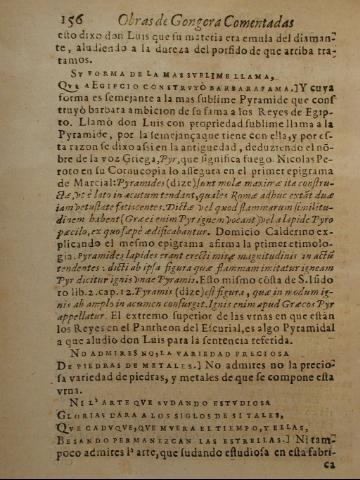 156 Obras de Gongora Comentadas
esto dixo don Luis que su materia era emula del diaman-
te, aludiendo a la dureza del porfido de que arriba tra-
tamos.
SV FORMA DE LA MAS SVBLIME LLAMA,
QVE A EGIPCIO CONSTRVYÒ BARBARA FAMA.] Y cuya
forma es semejante a la mas sublime Pyramide que cons
truyò barbara ambicion de su fama a los Reyes de Egip-
to. Llamò don Luis con propriedad sublime llama a la
Pyramide, por la semejança que tiene con ella, y por es-
ta razon se dixo assi en la antiguedad, deduziendo el nõ-
bre de la voz Griega, Pyr, que significa fuego. Nicolas Pe-
roto en su Cornucopia lo assegura en el primer epigrama
de Marcial: Pyramides (dize) sunt molæ maximæ ita constru-
ctæ, vt è lato in acutum tendant, quales Romæ adhuc extãt duæ
iam vetustate fatiscentes. Dictæ vel quod flammarum similitu-
dinem habent (Græci enim Pyr ignem vocant) vel a lapide Pyro
pæcilo, ex quo sæpe ædificabantur. Domicio Calderino ex-
plicando el mesmo epigrama afirma la primer etimolo-
gia. Pyramides lapides erant erecti miræ magnitudinis in acutũ
tendentes: dicti ab ipsa figura quæ flammam imitatur igneam
Pyr dicitur ignis vnde Pyramis. Esto mismo cõsta de S. Isido
ro lib. 2. cap. 12. Pyramis (dize) est figura, quæ in modum ig-
nis ab amplo in acumen consurgit. Ignis enim apud Græcos Pyr
appellatur. El extremo superior de las vrnas en que estàn
los Reyes en el Pantheon del Escurial, es algo Pyramidal
a que aludio don Luis para la sentencia referida.
NO ADMIRES NO, LA VARIEDAD PRECIOSA
DE PIEDRAS DE METALES.] No admires no la precio-
sa variedad de piedras, y metales de que se compone esta
vrna.
NI L'ARTE QVE SVDANDO ESTVDIOSA
GLORIAS DARA A LOS SIGLOS DE SI TALES,
QVE CADVQVE, QVE MVERA EL TIEMPO, Y ELLAS,
BESANDO PERMANEZCAN LAS ESTRELLAS.] Ni tam-
poco admires l'arte, que sudando estudiosa en esta fabri-
ca